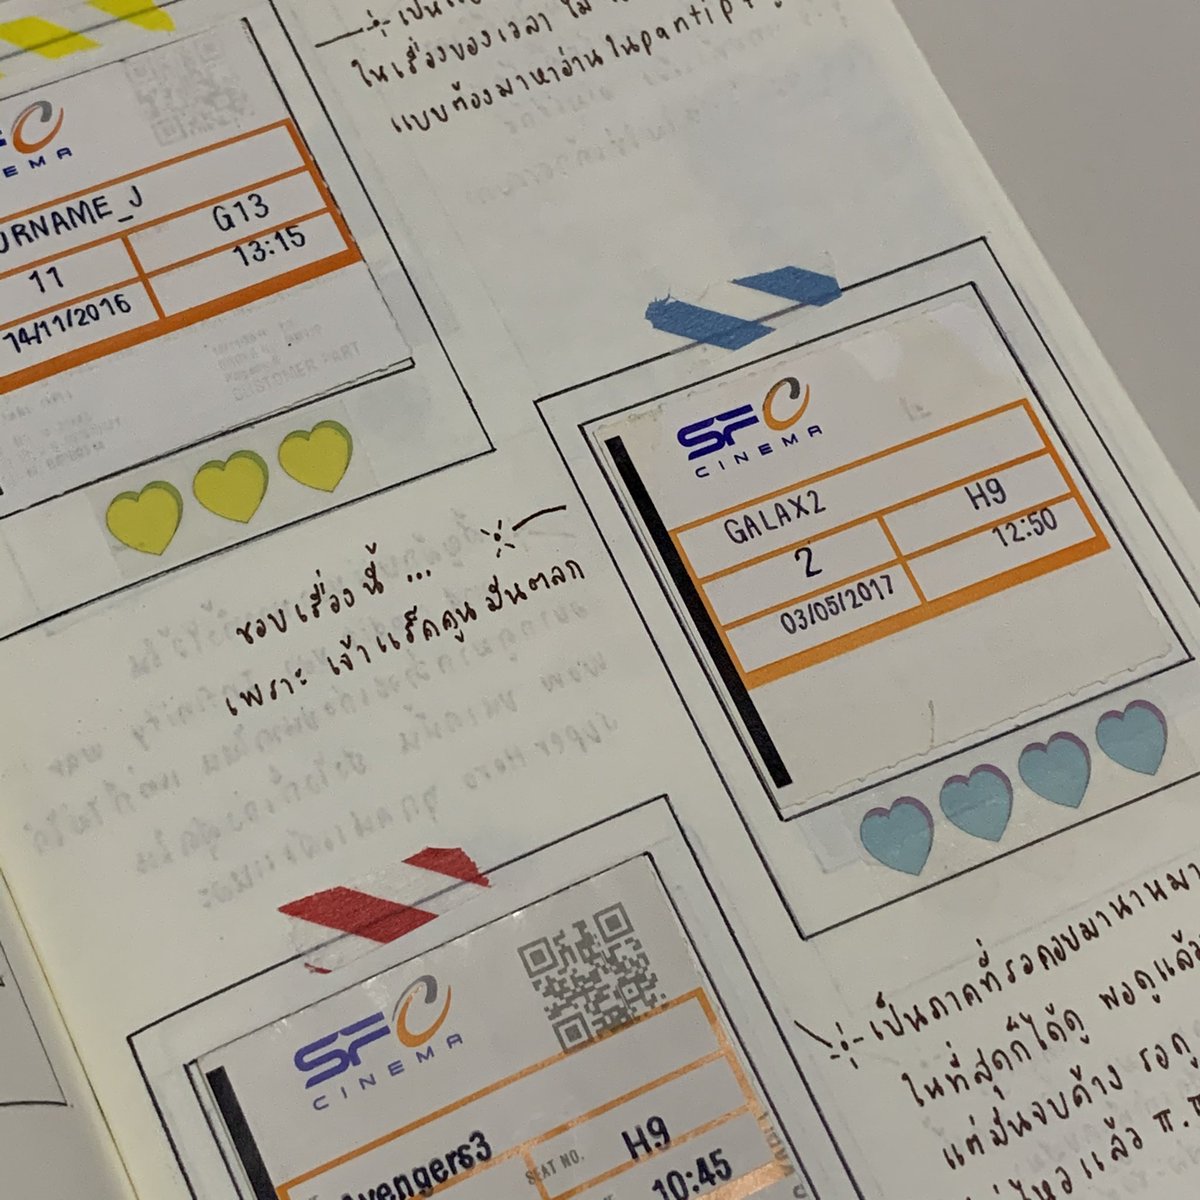 เป็น
ในเรื่องของเวลา ไม่
แบบต้องมาหาอ่านในpantip
CINEMA
URNAME_J
G13
11
13:15
14/11/2016
CUSTOMER PART
SF CINEMA
GALAX2
H9
2
12:50
03/05/2017
ชอบเรื่องนี้ ...
เพราะ เจ้าแร็คคูนมันตลก
SF CINEMA
Avengers3
SEAT NO.
H9
10:45
เป็นภาคที่รอคอยมานานมา
ในที่สุดก็ได้ดู พอดูแล้ว
แต่มันจบค้าง รอดู
ไหวแล้ว